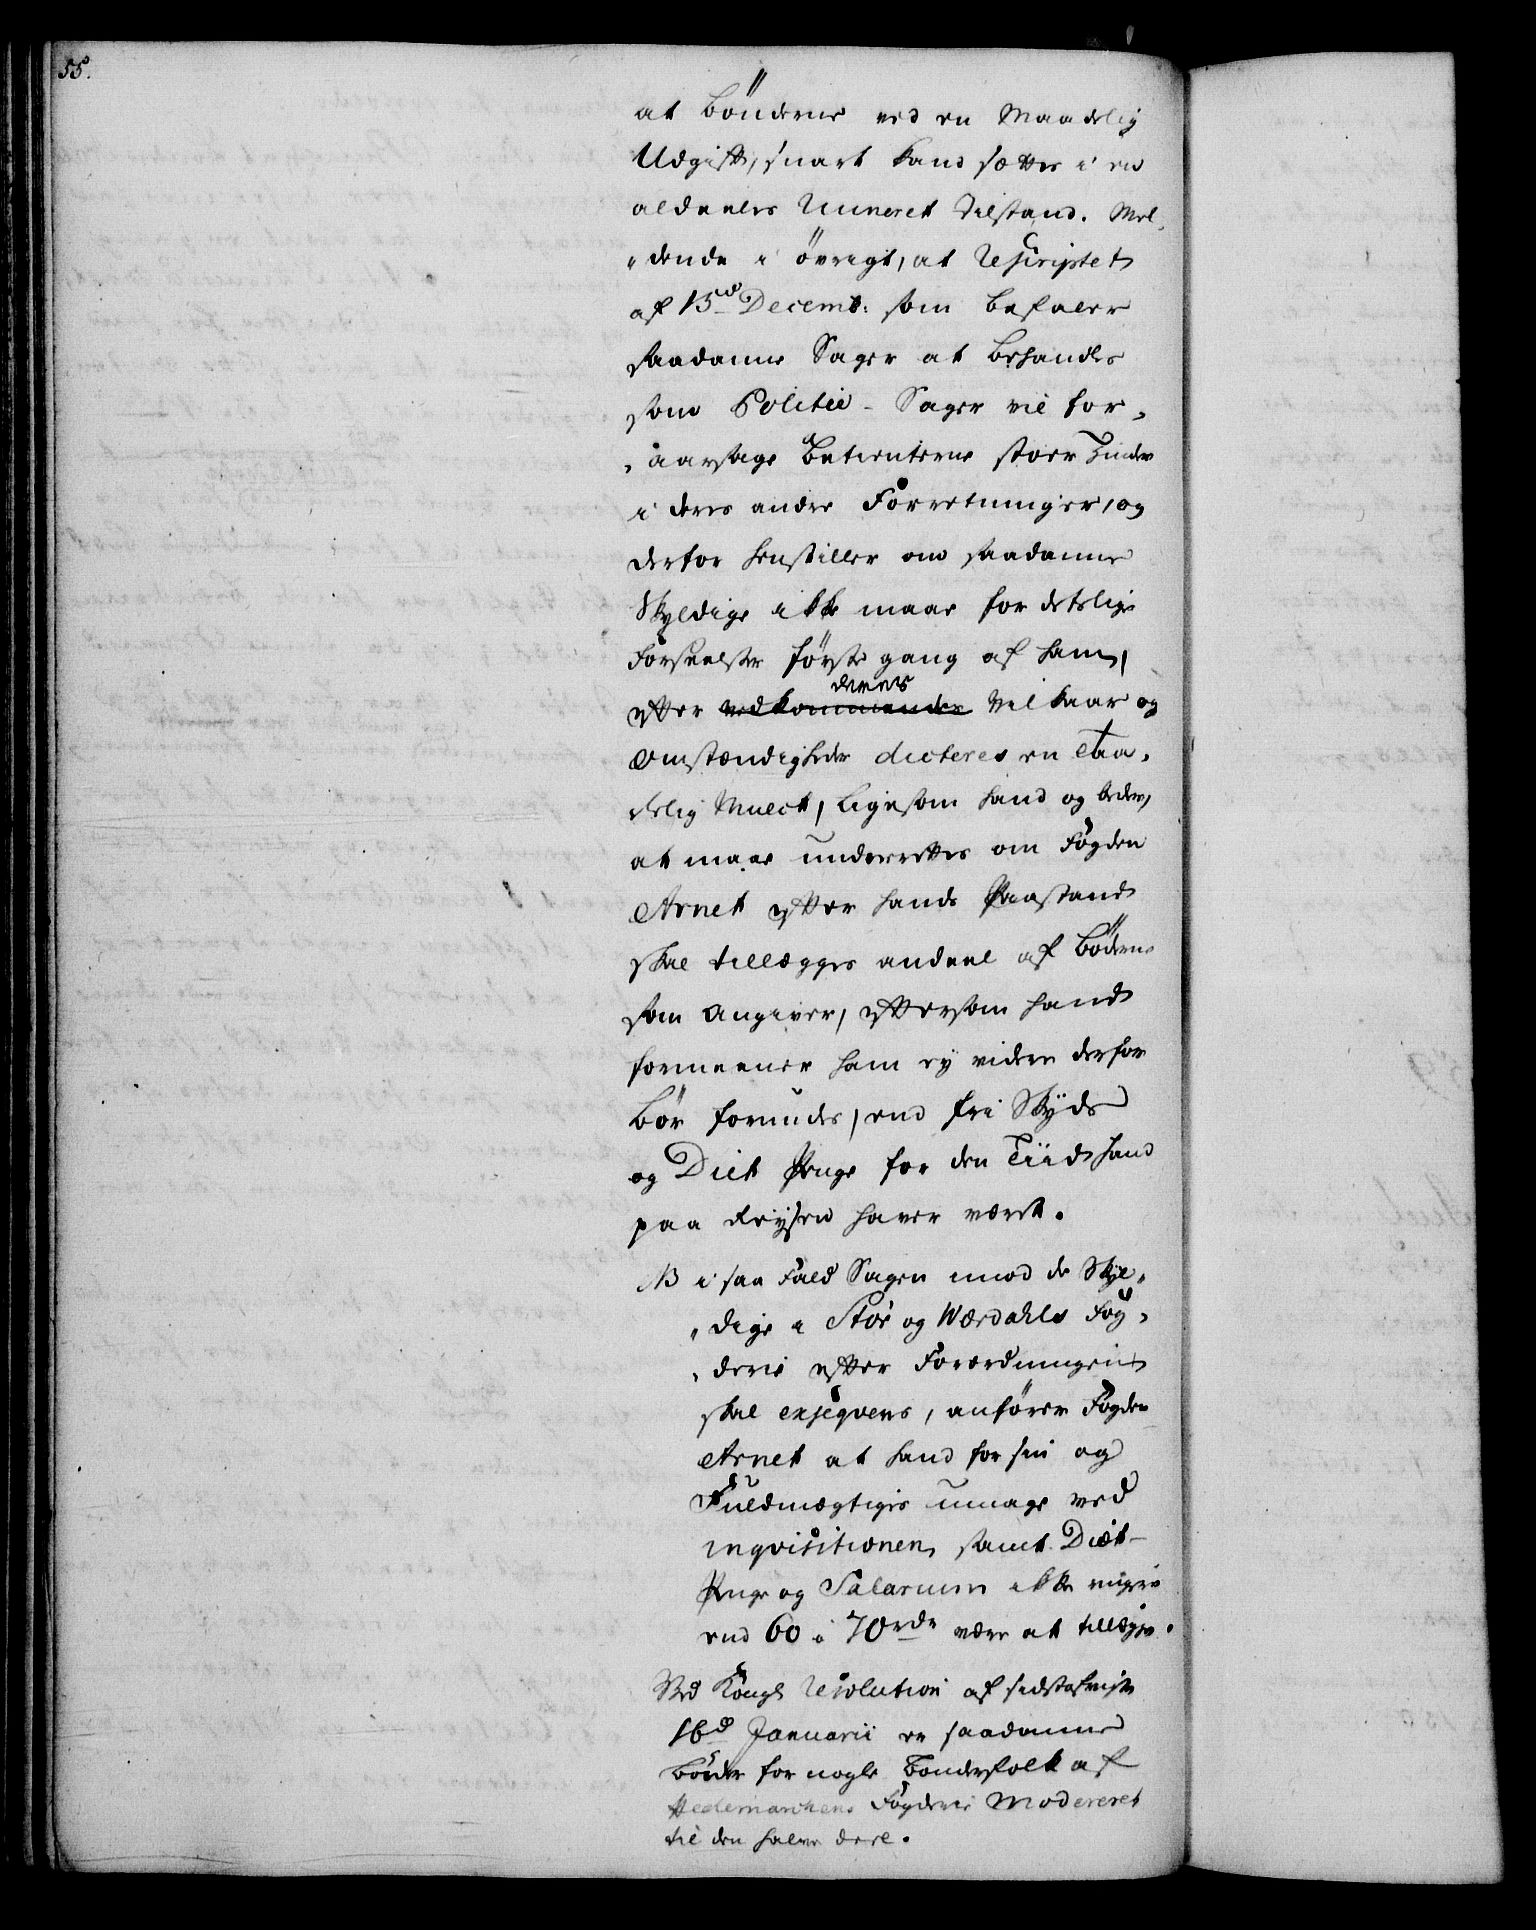 55.
at Bönderne ved en Maadelig
Udgift, snart kand sættes i en
aldeeles Ruineret Tilstand. Mel„
„dende i övrigt, at Rescriptet
af 15de Decemb: som befaler
saadanne Sager at behandles
som Politie-Sager vil for„
„aarsage Betienterne stoer Hinder
i deres andre Forretninger, og
derfor henstiller om saadanne
Skyldige ikke maae for detslige
Forseelser förste gang af ham,
efter vedkommendes deres Vilkaar og
Omstændigheder dicteres en Taa„
delig Mulct, ligesom hand og beder,
at maae underrettes om Fogden
Arnet efter hands Paastand
skal tillægges andeel af Böderne
som Angiver, eftersom hand
formeener ham ey videre derfor
bör forundes, end fri Skyds
og Diet Penge for den Tiid hand
paa Reysen haver været.
NB i saa Fald Sagen imod de Skyl„
„dige i Stör og Værdahls Fog„
„derie efter Forordningen
skal exseqveres, anförer Fogden
Arnet at hand for sin og
Fuldmægtiges umage ved
inqvisitionen, samt Diæt-
Penge og Salarium ikke ringere
end 60 á 70 rdr være at tillægge.
Ved Kongl Resolution af sidstafvigte
16d Januarii er saadanne
Böder for nogle Bondefolk af
Hedemarchens Fogderie Modereret
til den halve deel.